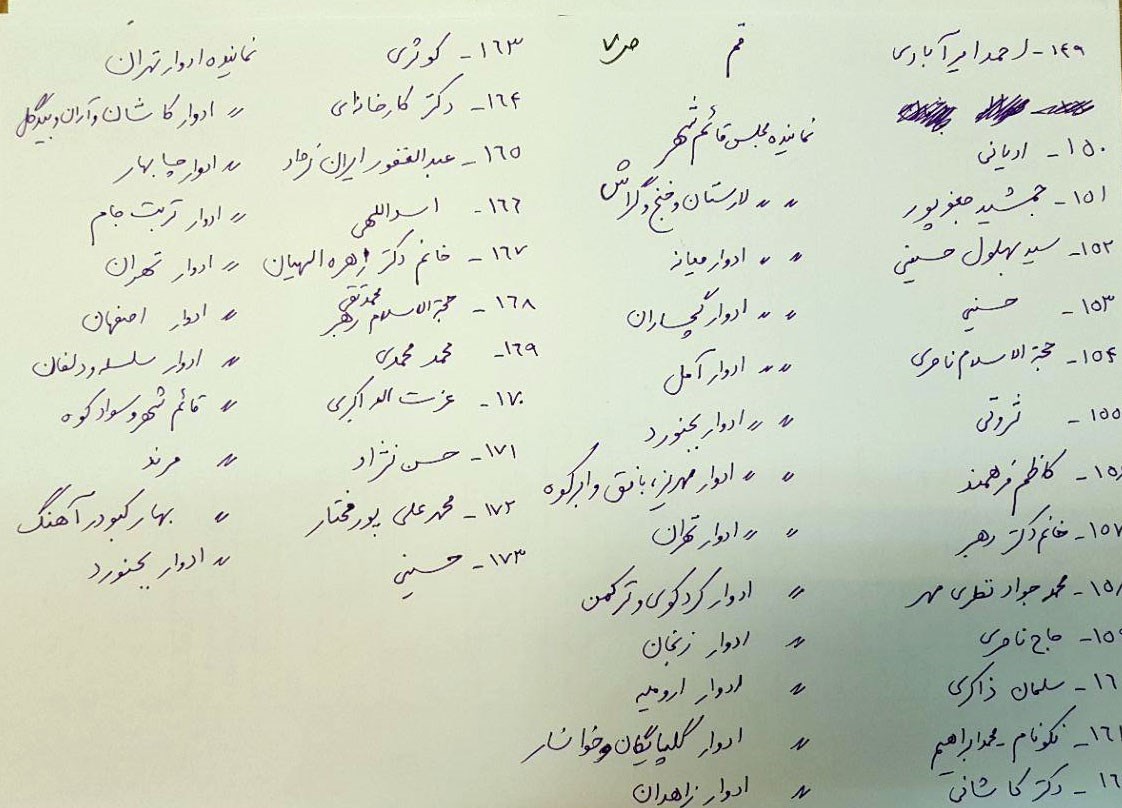 ۱۴۹- احمد امیرآبادی قم ص ۷
۱۵۰- ادیانی نماینده مجلس قائم شهر
۱۵۱- جمشید جعفرپور 〃 〃 لارستان و خنج و گراش
۱۵۲- سید بهلول حسینی 〃 〃 ادوار میانه
۱۵۳- حسنی 〃 〃 ادوار گچساران
۱۵۴- حجة الاسلام ناصری 〃 〃 ادوار آمل
۱۵۵- ثروتی 〃 〃 ادوار بجنورد
۱۵۶- کاظم فرهمند 〃 〃 ادوار مهریز، بافق و ابرکوه
۱۵۷- خانم دکتر رهبر 〃 〃 ادوار تهران
۱۵۸- محمد جواد نظری مهر 〃 ادوار کردکوی و ترکمن
۱۵۹- حاج ناصری 〃 ادوار زنجان
۱۶۰- سلمان ذاکری 〃 ادوار ارومیه
۱۶۱- نکونام - محمدابراهیم 〃 ادوار گلپایگان و خوانسار
۱۶- دکتر کاشانی 〃 ادوار زاهدان
۱۶۳- کوثری نماینده ادوار تهران
۱۶۴- دکتر کارخانه‌ای 〃 ادوار کاشان و آران و بیدگل
۱۶۵- عبدالغفور ایران نژاد 〃 ادوار چابهار
۱۶۶- اسداللهی 〃 ادوار تربت جام
۱۶۷- خانم دکتر زهره الهیان 〃 ادوار تهران
۱۶۸- حجة الاسلام محمدتقی رهبر 〃 ادوار اصفهان
۱۶۹- محمد محمدی 〃 ادوار سلسله و دلفان
۱۷۰- عزت اله اکبری 〃 قائم شهر و سوادکوه
۱۷۱- حسن نژاد 〃 مرند
۱۷۲- محمدعلی پورمختار 〃 بهار کبودرآهنگ
۱۷۳- حسینی 〃 ادوار بجنورد